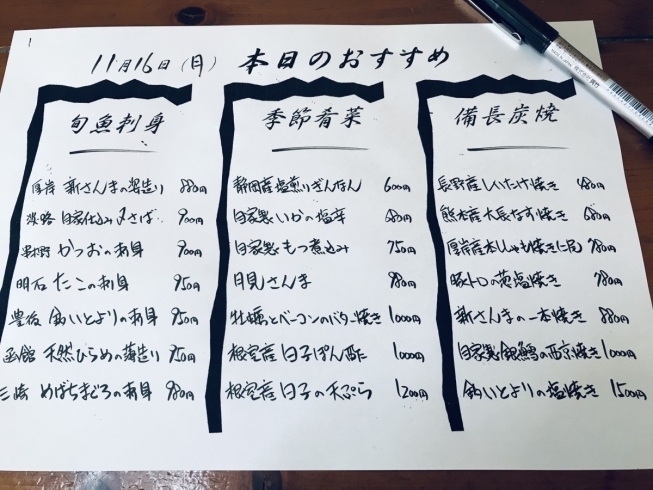 11月16日(月) 本日のおすすめ
旬魚刺身
厚岸 新さんまの姿造り 880円
淡路 自家仕込み〆さば 900円
かつおの刺身 900円
明石 たこの刺身 950円
豊後 釣いとよりの刺身 950円
函館 天然ひらめの薄造り 950円
三崎 めばちまぐろの刺身 980円
季節肴菜
静岡産塩煎りぎんなん 600円
自家製いかの塩辛 680円
自家製もつ煮込み 750円
月見さんま 980円
牡蠣とベーコンのバター焼き 1000円
根室産白子ぽん酢 1000円
根室産白子の天ぷら 1200円
備長炭焼
長野産しいたけ焼き 680円
熊本産大長なす焼き 680円
厚岸産本ししゃも焼き二尾 780円
豚トロの黄塩焼き 780円
新さんまの一本焼き 880円
自家製銀鱈の西京焼き 1000円
釣いとよりの塩焼き 1500円